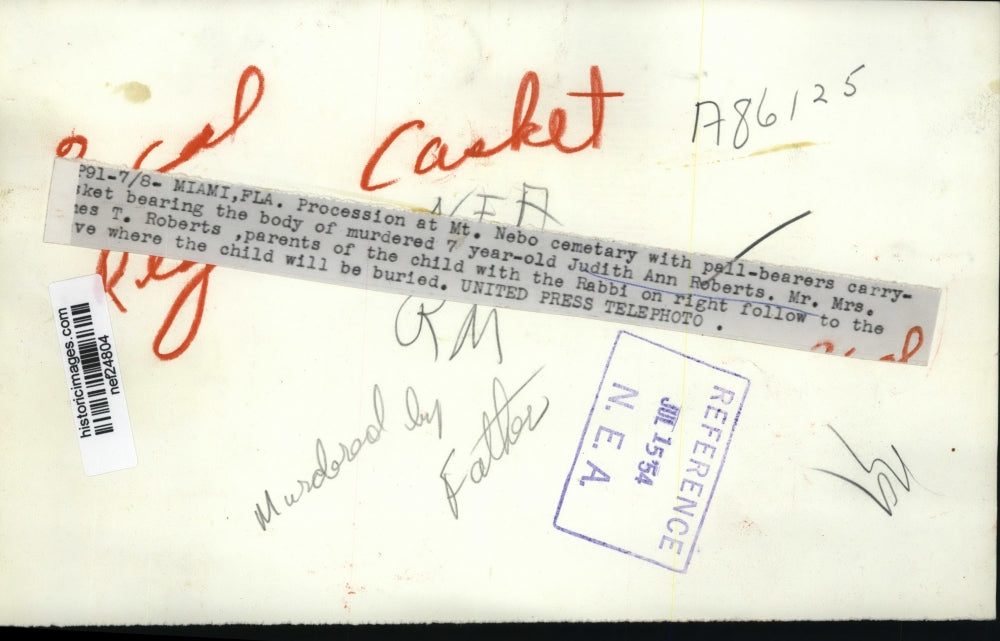 Casket
A86125
NEA
P91-7/8- MIAMI,FLA. Procession at Mt. Nebo cemetary with pall-bearers carry-
sket bearing the body of murdered 7 year-old Judith Ann Roberts. Mr. Mrs.
mes T. Roberts ,parents of the child with the Rabbi on right follow to the
ve where the child will be buried. UNITED PRESS TELEPHOTO .
historicimages.com
nef24804
RM
Murdered by
Father
REFERENCE
JUL 15 '54
N. E. A.